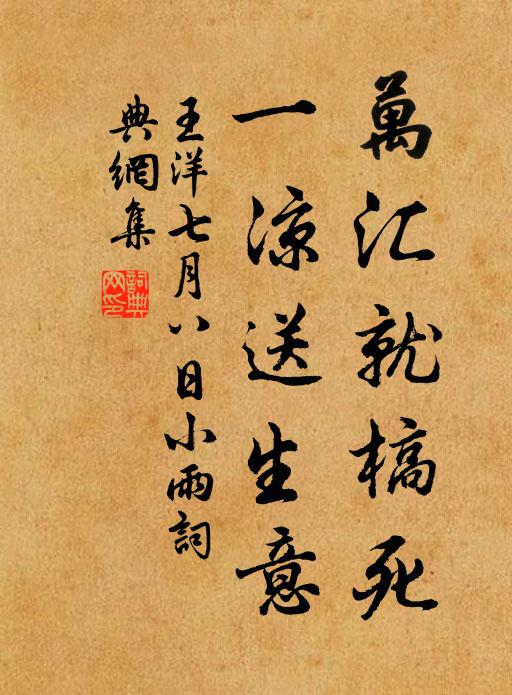 萬汇就槁死
一凉送生意
王洋七月八日小雨詞
典網集
詞典网印